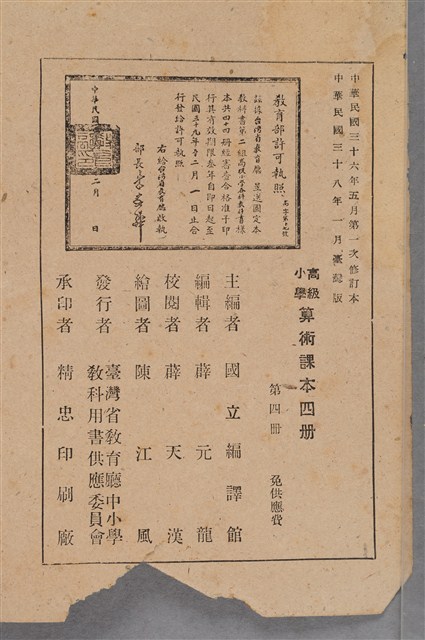 中華民國三十六年五月第一次修訂本
中華民國三十八年一月臺灣版
高級
小學
算術課本四册
第四册
免供應費
教育部許可執照
教科書第二組高級小學
本共四十四册經審查合格准予印
行其有效期限叁年自即日起至
民國三十九年十二月一日止合
行發給許可執照
部長
中華民國
二月
日
主編者 國立編譯館
編輯者 薛元龍
校閱者 薛天漢
繪圖者 陳江風
發行者 臺灣省教育廳中小學
教科用書供應委員會
承印者 精忠印刷廠